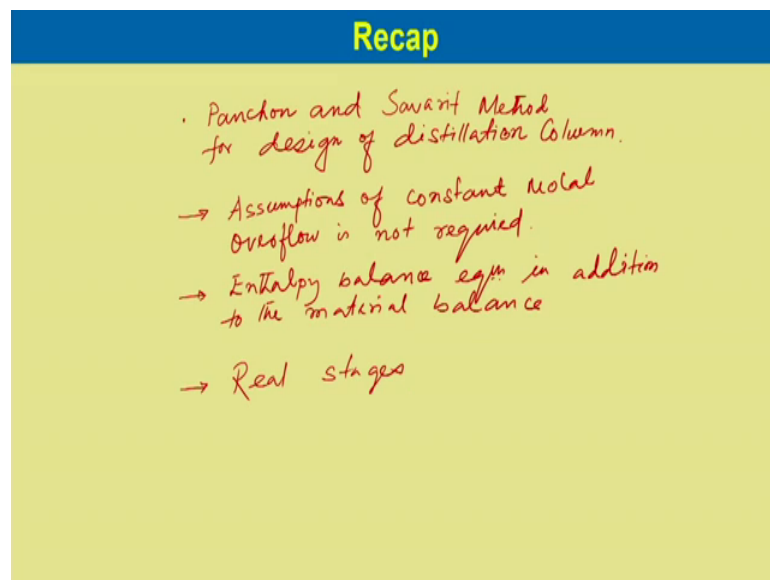 Recap
. Panchon and Savarit Method
for design of distillation Column.
→ Assumptions of constant Molal
overflow is not required.
→ Enthalpy balance eqn in addition
to the material balance
→ Real stages